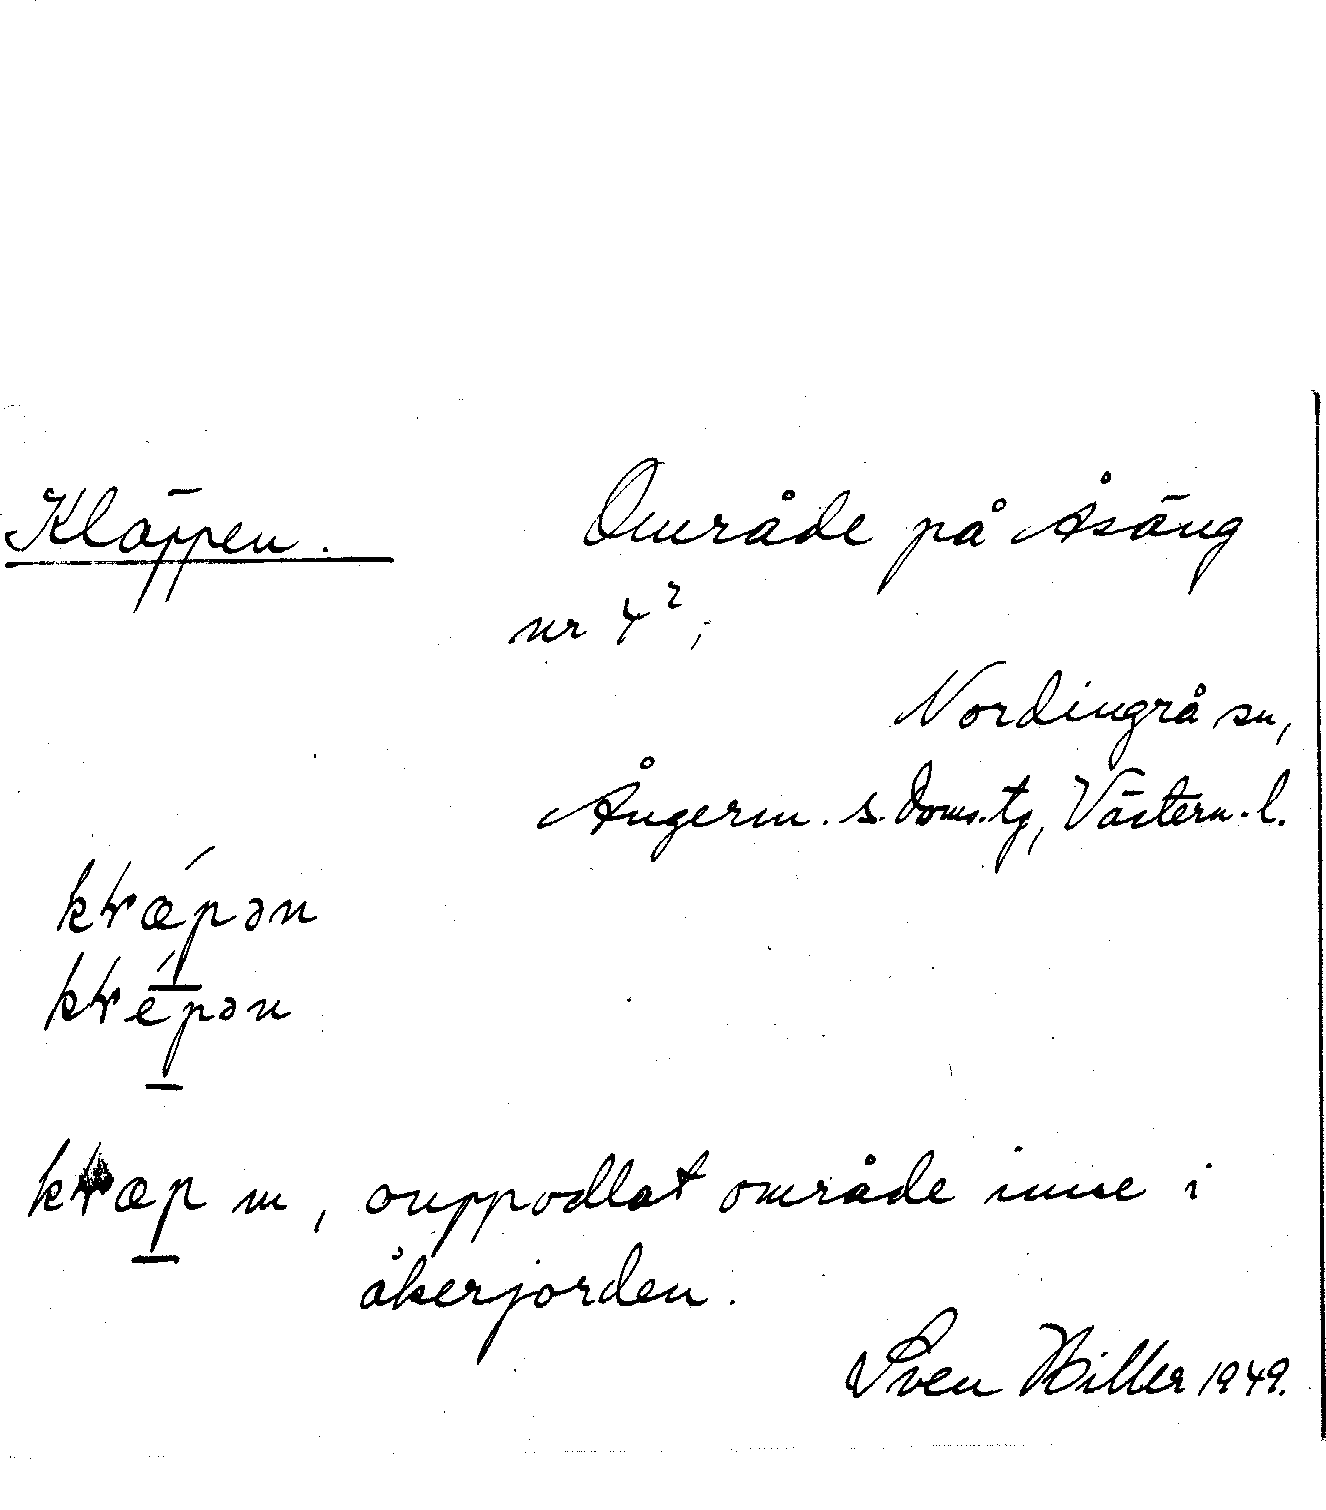 Kläppen. Område på Åsäng
nr 4²;
Nordingrå sn,
Ångerm. s. doms. tg, Västern. l.
kɬæ´pən
kɬe´pən
kɬæp m, ouppodlat område inne i
åkerjorden.
Sven Hiller 1949.